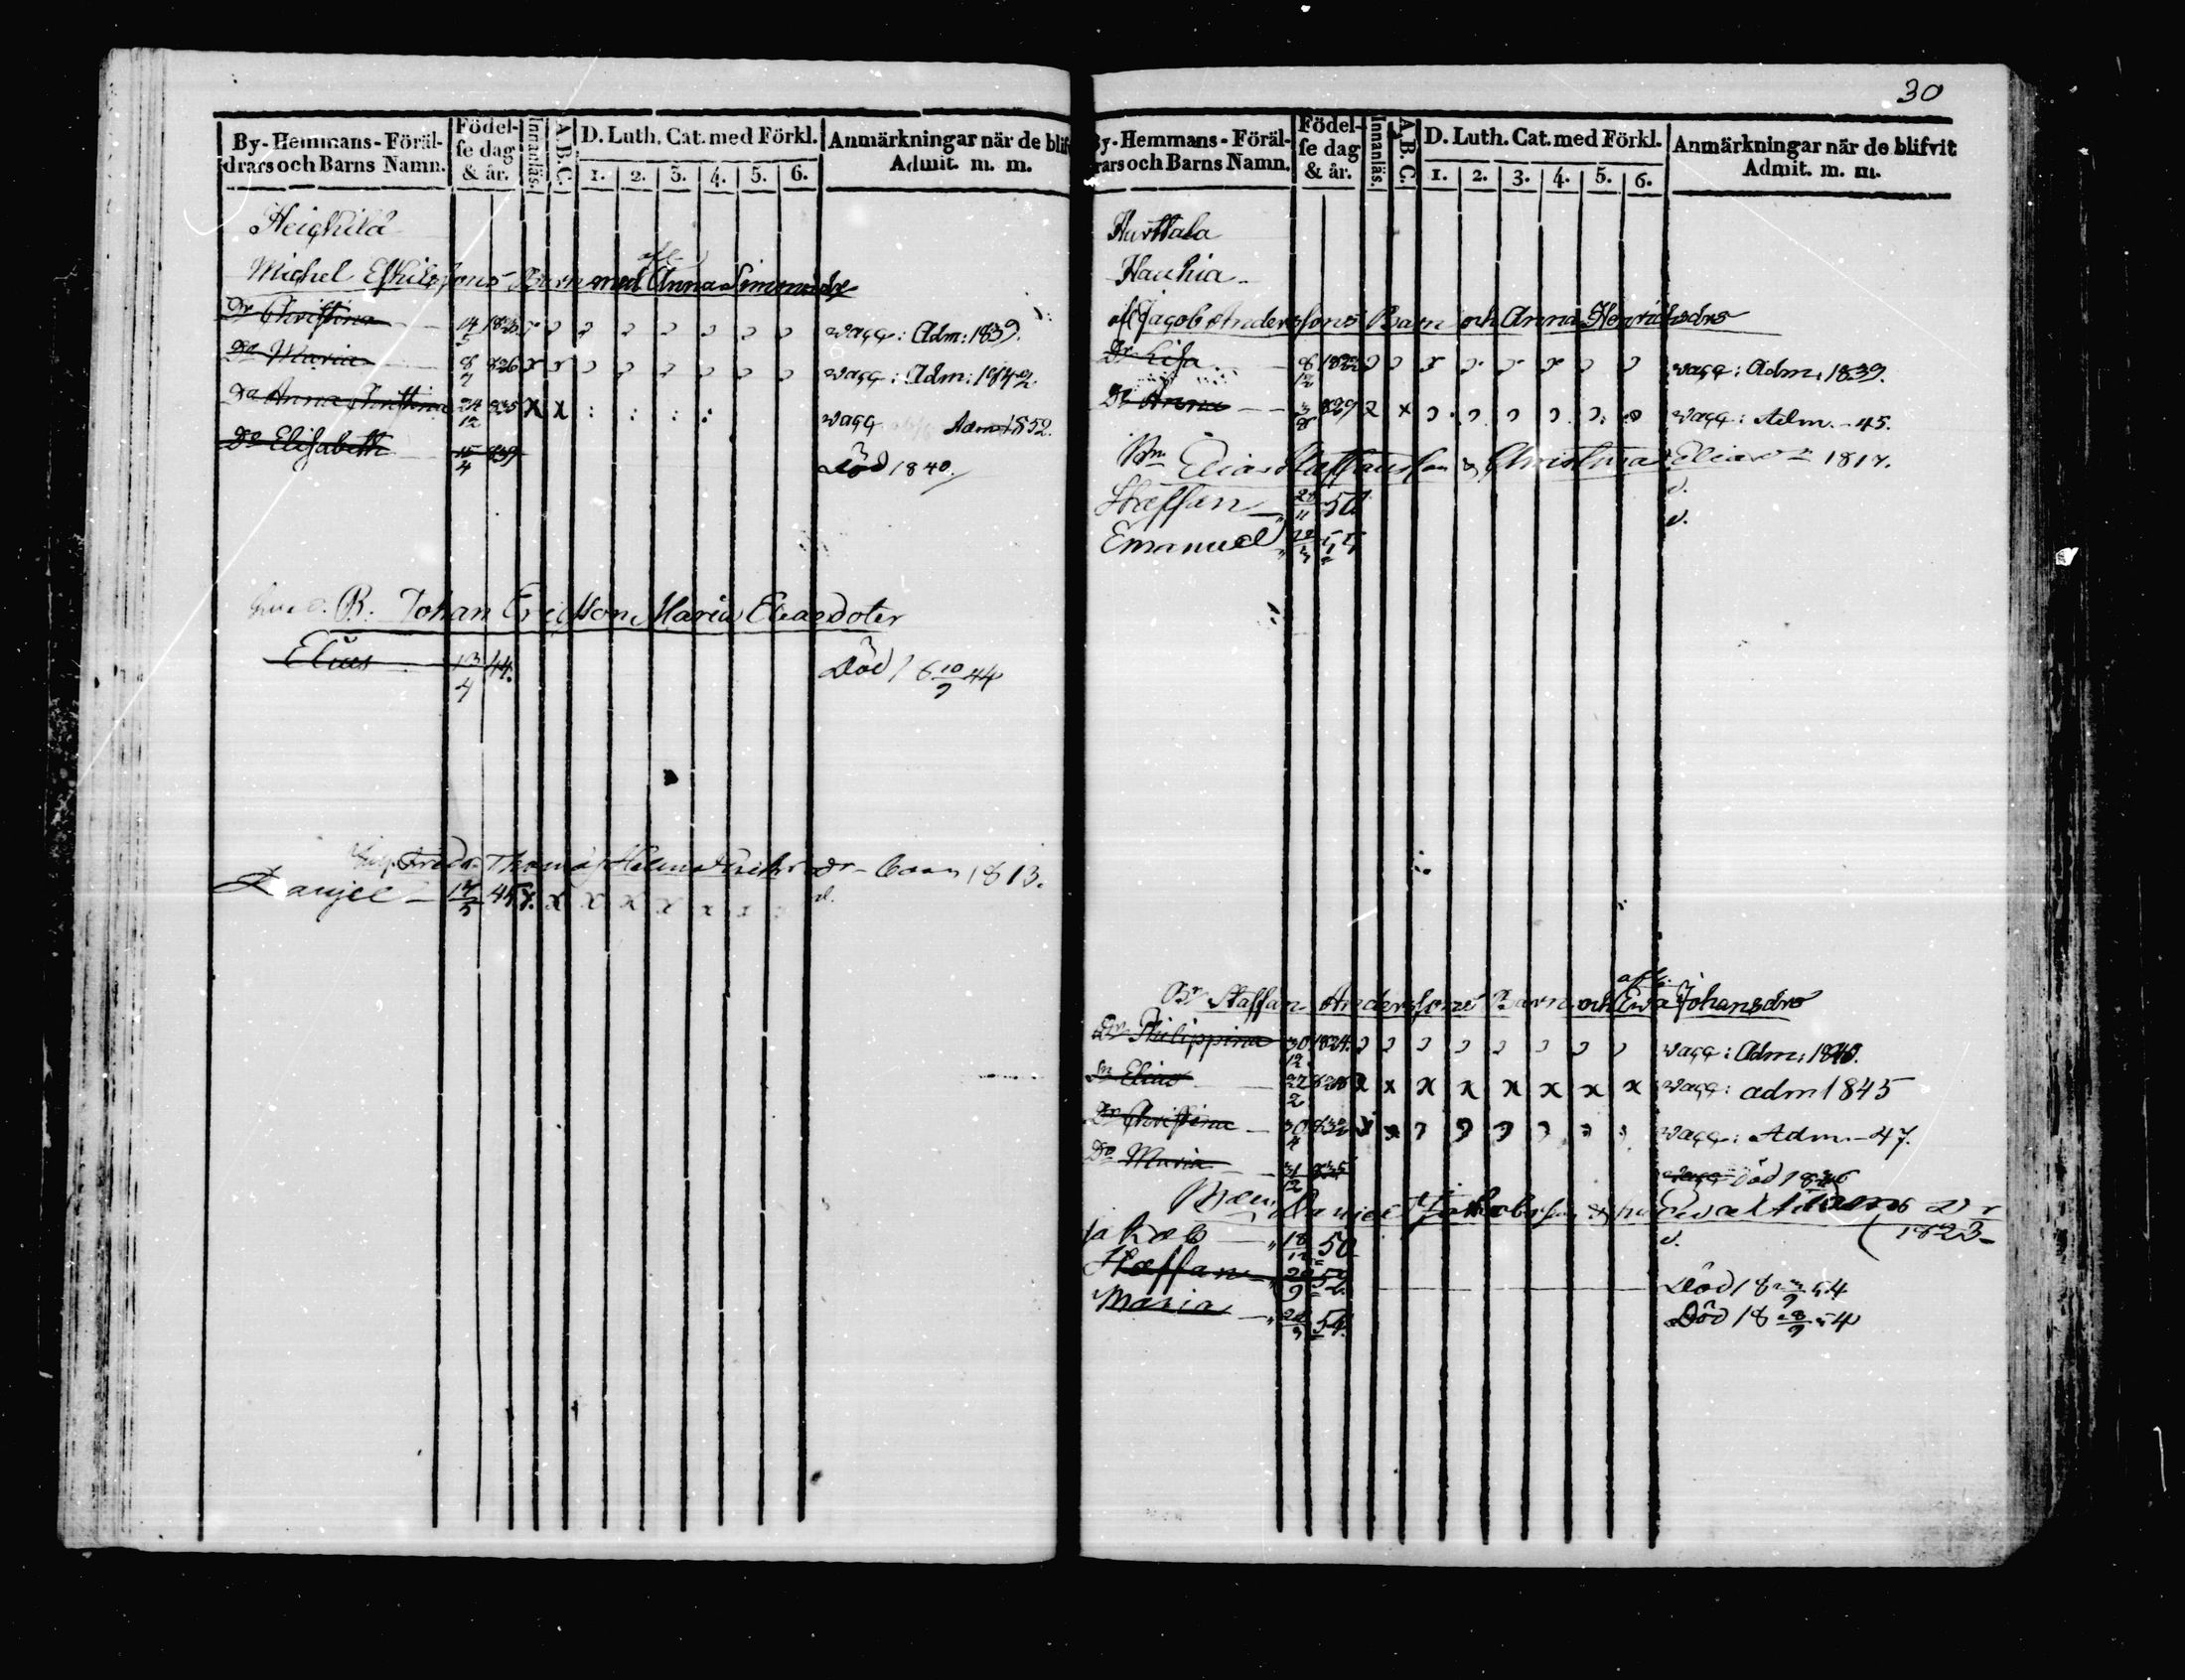 By-Hemmans-Föräl-
drars och Barns Namn.
Födel-
se dag
& år.
Innanläs.
A.B.C.
D. Luth. Cat. med Förkl.
1. 2. 3. 4. 5. 6.
Anmärkningar när de blif
Admit. m. m.
Heickilä
afl.
Michel Eskilssons Barn med Anna Simonsdr
Dr Christina 14/5 1823 vacc: Adm: 1839.
Do Maria 8/7 826 x x vacc: Adm: 1842.
Do Anna Christina 24/12 835 x x : : : : vacc Adm 1852.
Do Elisabeth 15/4 839 död 1840.
B. Johan Ericsson Maria Eliasdoter
Elias 13/4 44. Död 18 10/9 44
Fredr. Thomas 1813.
Danjel 17/5 45 x. x x x x x x d.
30
By-Hemmans-Föräl-
rars och Barns Namn.
Födel-
se dag
& år.
Innanläs.
A.B.C.
D. Luth. Cat. med Förkl.
1. 2. 3. 4. 5. 6.
Anmärkningar när de blifvit
Admit. m. m.
Hurttala
Hauhia
afl Jacob Anderssons Barn och Anna Henrichsdrs
Dr Lisa 8/12 1822 vacc: Adm: 1839.
Dr Anna 3/8 829 x x vacc: Adm. -45.
Bn Elias Staffansson & Christina Eliasdr 1817.
Staffan 28/11 50. v.
Emanuel v.
afl.
Br Staffan Anderssons Barn och Ewa Johansdrs
Dr Philippina 30/12 1824. vacc: Adm: 1840.
Sn Elias 22/2 828 x x x x x x x x vacc: adm 1845
Dr Christina 30/4 832 x x vacc: Adm. -47.
Do Maria 31/12 835 vacc död 1836
Daniel Jakobsson & Dr
(1823-
Jakob 18/12 50 v.
Staffan 20/9 52. Död 18 54
Maria 54. Död 18 28/9 54